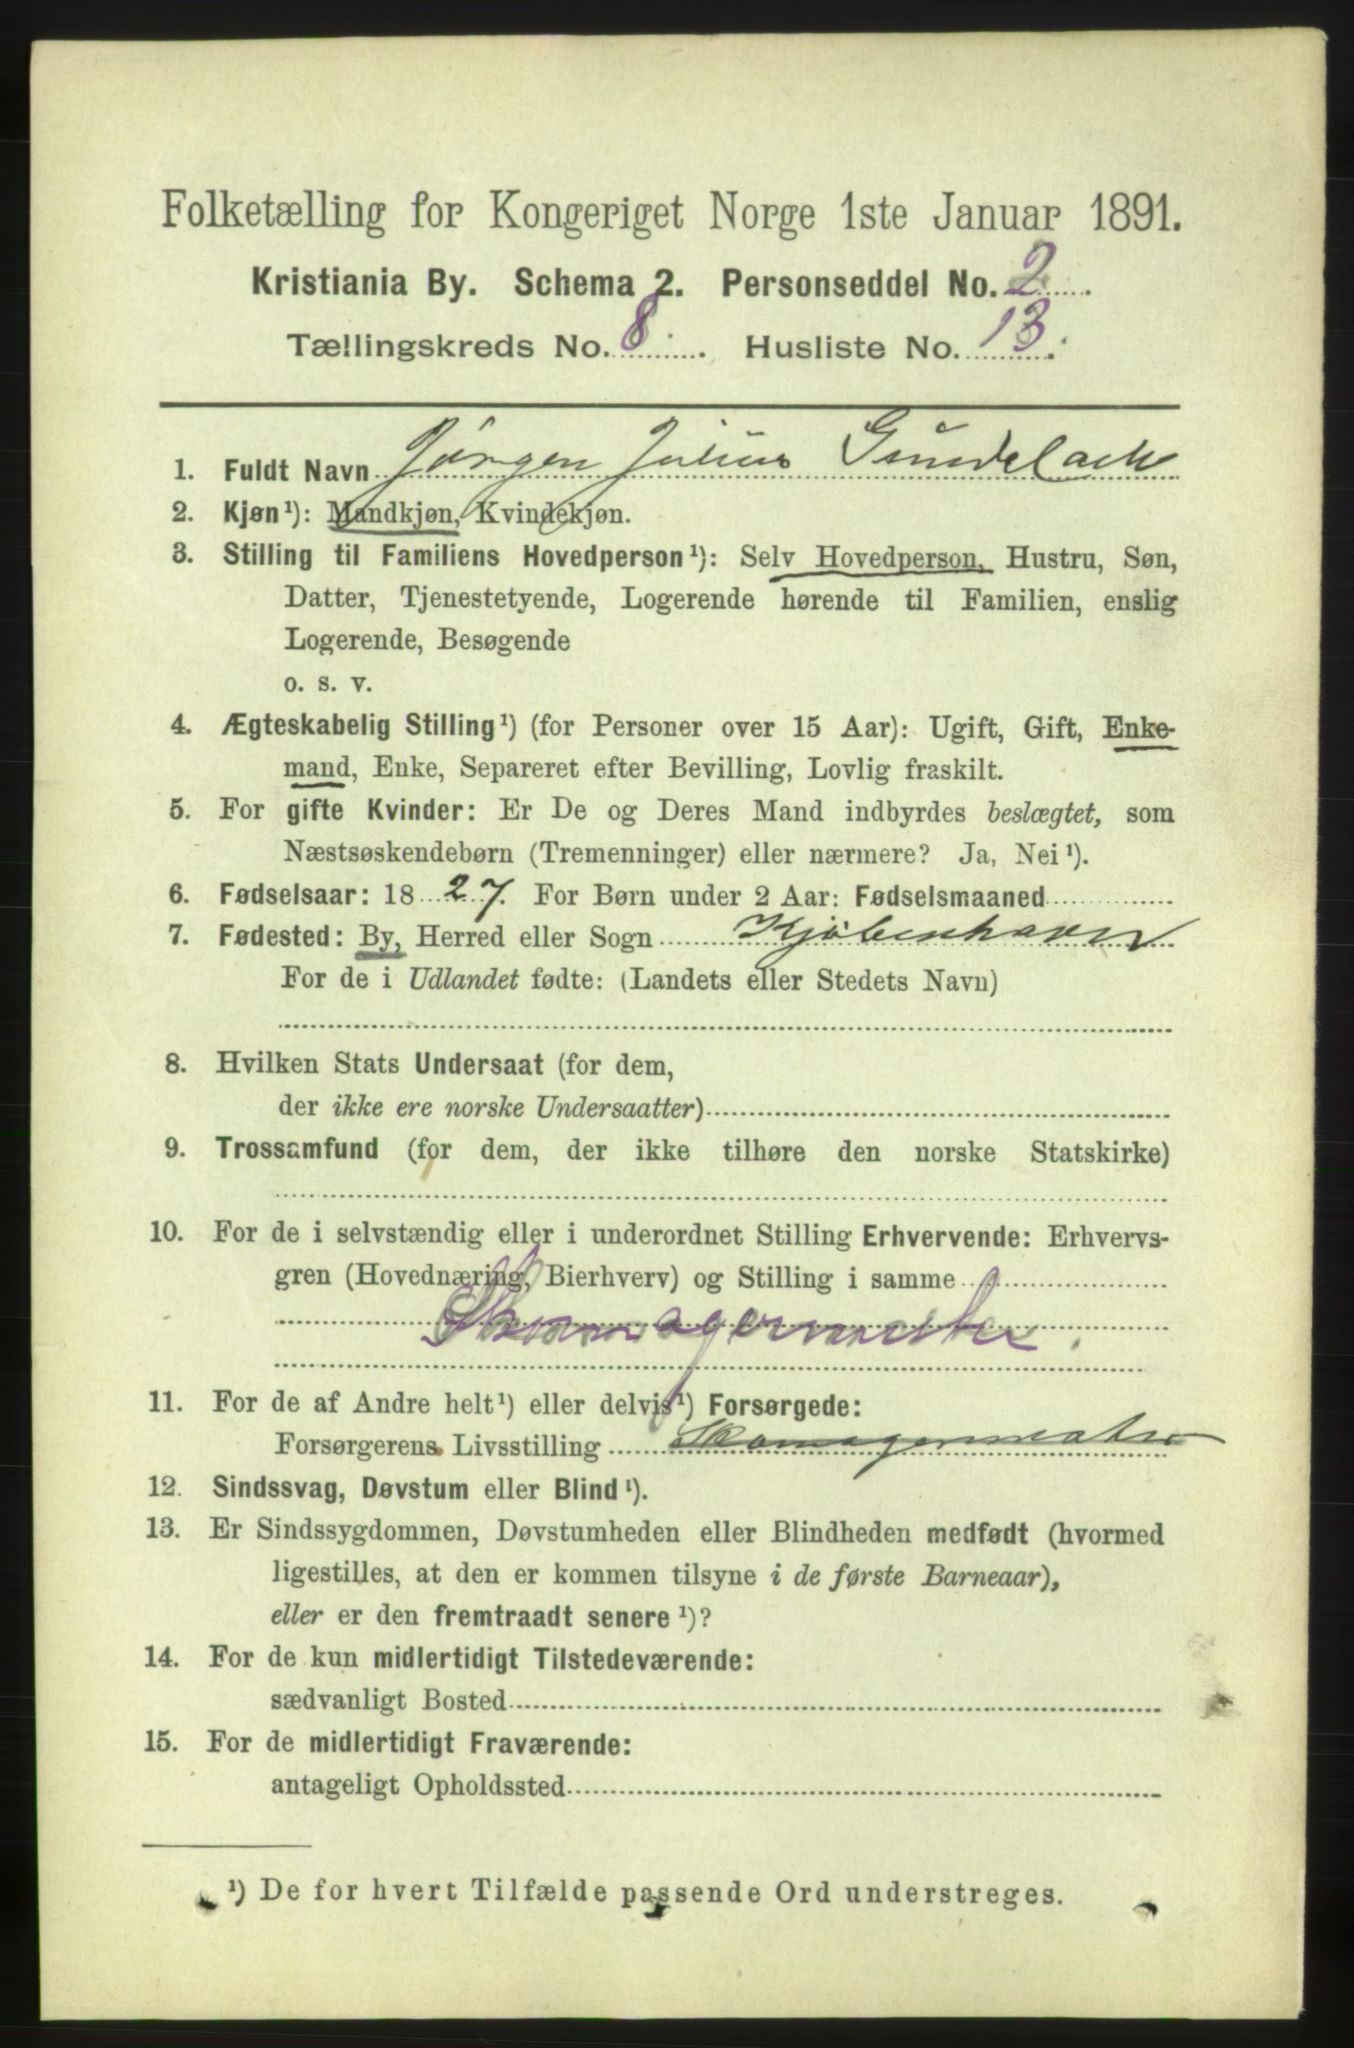 Folketælling for Kongeriget Norge 1ste Januar 1891.
Kristiania By. Schema 2. Personseddel No. 2
Tællingskreds No. 8. Husliste No. 13.
1. Fuldt Navn Jørgen Julius Gundelach
2. Kjøn¹): Mandkjøn, Kvindekjøn.
3. Stilling til Familiens Hovedperson¹): Selv Hovedperson, Hustru, Søn,
Datter, Tjenestetyende, Logerende hørende til Familien, enslig
Logerende, Besøgende
o. s. v.
4. Ægteskabelig Stilling¹) (for Personer over 15 Aar): Ugift, Gift, Enke-
mand, Enke, Separeret efter Bevilling, Lovlig fraskilt.
5. For gifte Kvinder: Er De og Deres Mand indbyrdes beslægtet, som
Næstsøskendebørn (Tremenninger) eller nærmere? Ja, Nei¹).
6. Fødselsaar: 1827. For Børn under 2 Aar: Fødselsmaaned
7. Fødested: By, Herred eller Sogn Kjøbenhavn
For de i Udlandet fødte: (Landets eller Stedets Navn)
8. Hvilken Stats Undersaat (for dem,
der ikke ere norske Undersaatter)
9. Trossamfund (for dem, der ikke tilhøre den norske Statskirke)
10. For de i selvstændig eller i underordnet Stilling Erhvervende: Erhvervs-
gren (Hovednæring, Bierhverv) og Stilling i samme
Skomagermester.
11. For de af Andre helt¹) eller delvis¹) Forsørgede:
Forsørgerens Livsstilling Skomagermester
12. Sindssvag, Døvstum eller Blind¹).
13. Er Sindssygdommen, Døvstumheden eller Blindheden medfødt (hvormed
ligestilles, at den er kommen tilsyne i de første Barneaar),
eller er den fremtraadt senere¹)?
14. For de kun midlertidigt Tilstedeværende:
sædvanligt Bosted
15. For de midlertidigt Fraværende:
antageligt Opholdssted
¹) De for hvert Tilfælde passende Ord understreges.